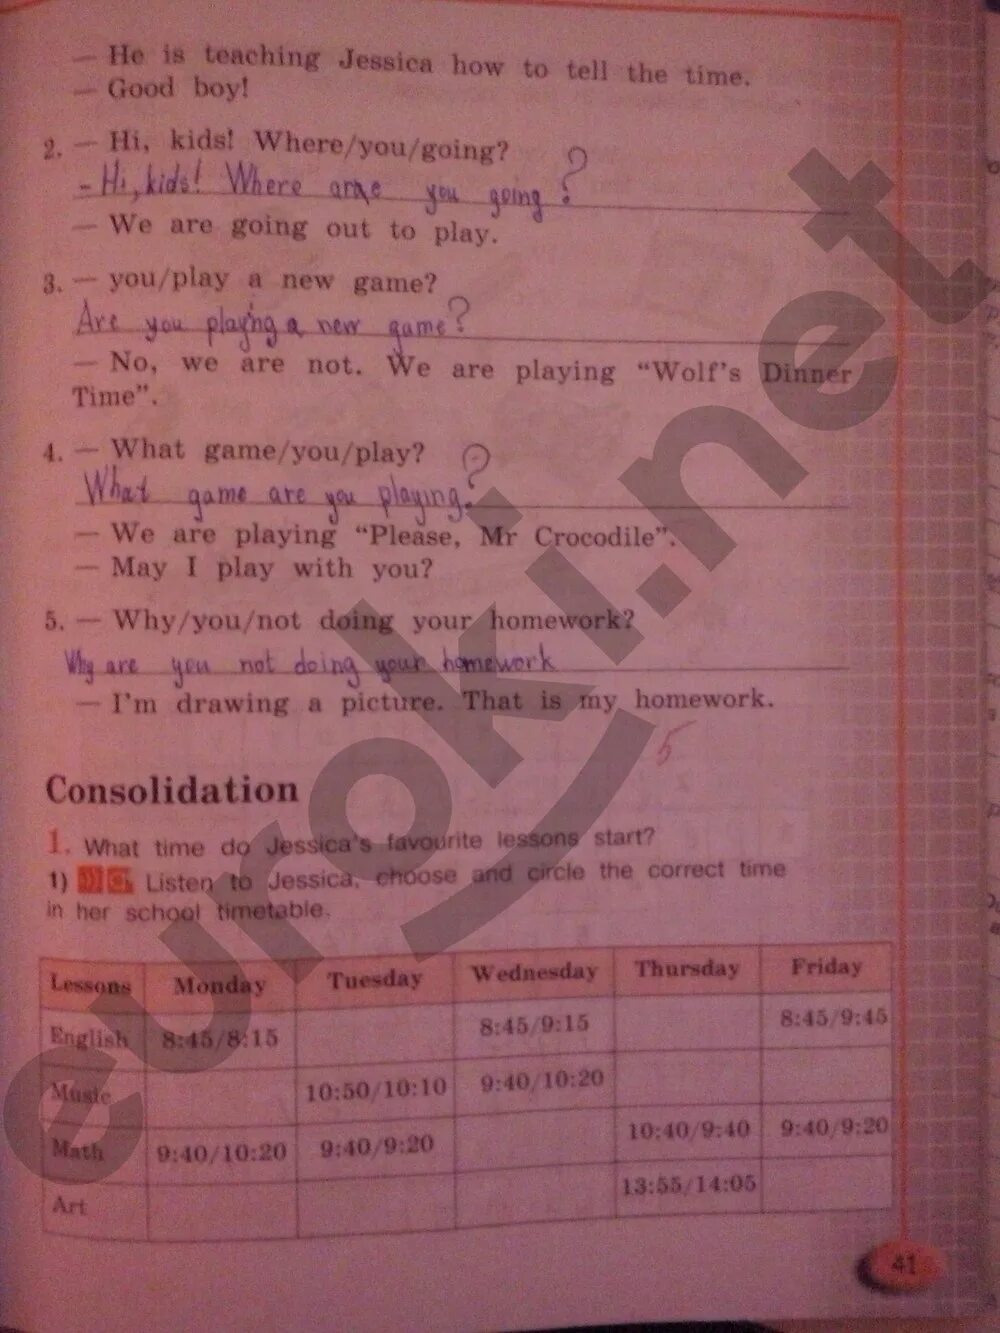 — He is teaching Jessica how to tell the time.
— Good boy!
2. — Hi, kids! Where/you/going?
- Hi, kids! Where are you going?
— We are going out to play.
3. — you/play a new game?
Are you playing a new game?
— No, we are not. We are playing “Wolf’s Dinner
Time”.
4. — What game/you/play?
What game are you playing?
— We are playing “Please, Mr Crocodile”.
— May I play with you?
5. — Why/you/not doing your homework?
Why are you not doing your homework
— I’m drawing a picture. That is my homework.
5
Consolidation
1. What time do Jessica’s favourite lessons start?
1) Listen to Jessica, choose and circle the correct time
in her school timetable.
Lessons Monday Tuesday Wednesday Thursday Friday
English 8:45/8:15 8:45/9:15 8:45/9:45
Music 10:50/10:10 9:40/10:20
Math 9:40/10:20 9:40/9:20 10:40/9:40 9:40/9:20
Art 13:55/14:05
41
euroki.net